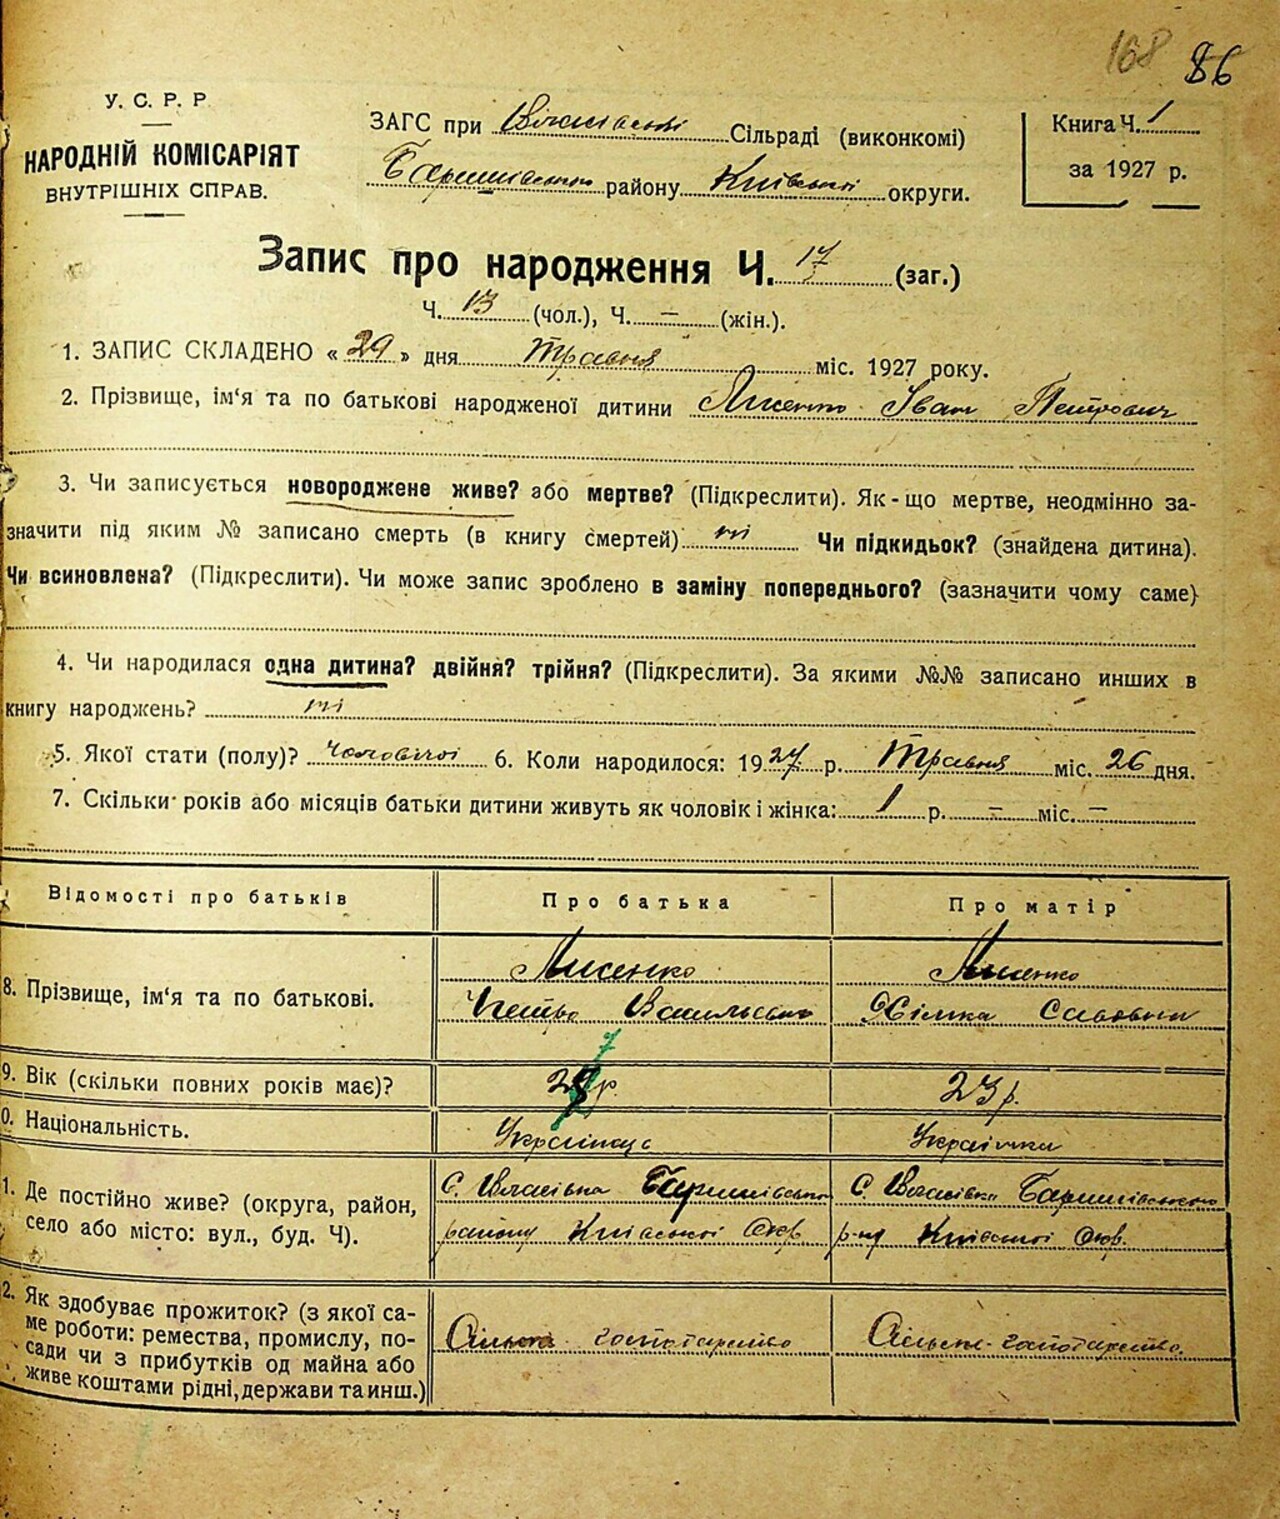 168 86
У. С. Р. Р
НАРОДНІЙ КОМІСАРІЯТ
ВНУТРІШНІХ СПРАВ.
ЗАГС при Власівській Сільраді (виконкомі)
Баришівського району Київської округи.
Книга Ч. 1
за 1927 р.
Запис про народження Ч. 17 (заг.)
Ч. 13 (чол.), Ч. — (жін.).
1. ЗАПИС СКЛАДЕНО « 29 » дня Травня міс. 1927 року.
2. Прізвище, ім‘я та по батькові народженої дитини Лисенко Іван Петрович
3. Чи записується новороджене живе? або мертве? (Підкреслити). Як-що мертве, неодмінно за-
значити під яким № записано смерть (в книгу смертей) ні Чи підкидьок? (знайдена дитина).
Чи всиновлена? (Підкреслити). Чи може запис зроблено в заміну попереднього? (зазначити чому саме)
4. Чи народилася одна дитина? двійня? трійня? (Підкреслити). За якими №№ записано инших в
книгу народжень? ні
5. Якої стати (полу)? чоловічої 6. Коли народилося: 1927 р. Травня міс. 26 дня.
7. Скільки років або місяців батьки дитини живуть як чоловік і жінка: 1 р. — міс. —
Відомості про батьків Про батька Про матір
8. Прізвище, ім‘я та по батькові.
Лисенко Лисенко
Петро Васильович Хімка Савовна
9. Вік (скільки повних років має)? 28 р. 7 23 р.
0. Національність. Українець Українка
1. Де постійно живе? (округа, район,
село або місто: вул., буд. Ч).
С. Власівка Баришівського С. Власівка Баришівського
району Київської Окр. р-ну Київської Окр.
2. Як здобуває прожиток? (з якої са-
ме роботи: ремества, промислу, по-
сади чи з прибутків од майна або
живе коштами рідні, держави та инш.)
Сільське господарство Сільське-господарство.